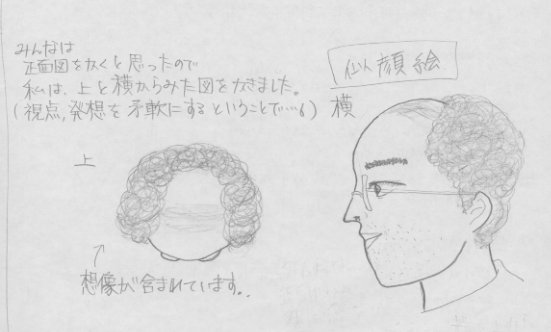 みんなは
正面図をかくと思ったので
私は、上と横からみた図をかきました。
(視点,発想を柔軟にするということで…。)
似顔絵
横
上
↑
想像が含まれています。